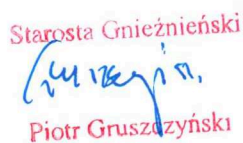 Starosta Gnieźnieński
Piotr Gruszczyński